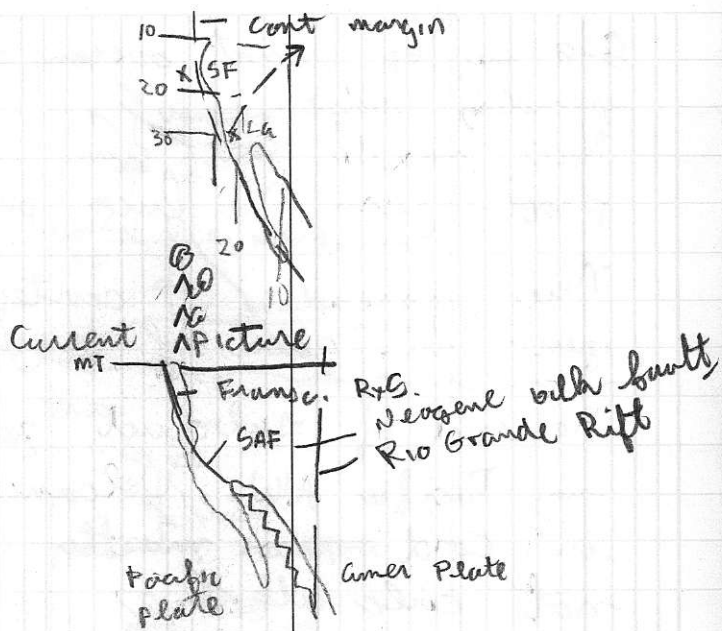 10 Cont margin
X SF
20
30 X LA
20
10
Current Picture
MT
Franc. Rxs.
Neogene fault
SAF
Rio Grande Rift
Pacific Amer Plate
plate